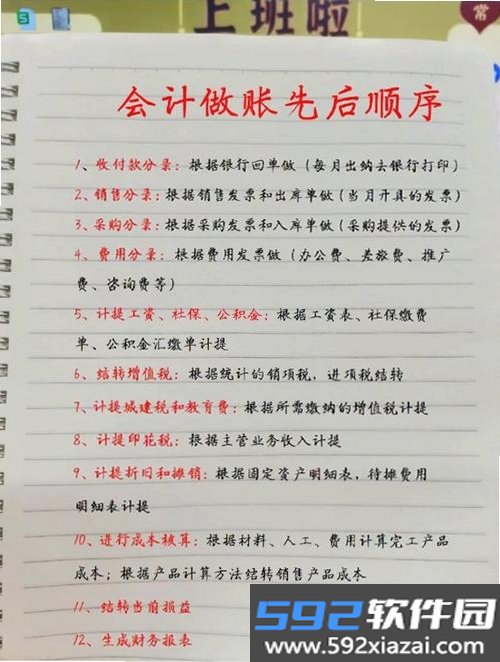 上班啦
常
会计做账先后顺序
1、收付款分录：根据银行回单做（每月出纳去银行打印）
2、销售分录：根据销售发票和出库单做（当月开具的发票）
3、采购分录：根据采购发票和入库单做（采购提供的发票）
4、费用分录：根据费用发票做（办公费、差旅费、推广
费、咨询费等）
5、计提工资、社保、公积金：根据工资表、社保缴费
单、公积金汇缴单计提
6、结转增值税：根据统计的销项税，进项税结转
7、计提城建税和教育费：根据所需缴纳的增值税计提
8、计提印花税：根据主管业务收入计提
9、计提折旧和摊销：根据固定资产明细表，待摊费用
明细表计提
10、进行成本核算：根据材料、人工、费用计算完工产品
成本；根据产品计算方法结转销售产品成本
11、结转当前损益
12、生成财务报表
592软件园
www.592xiazai.com